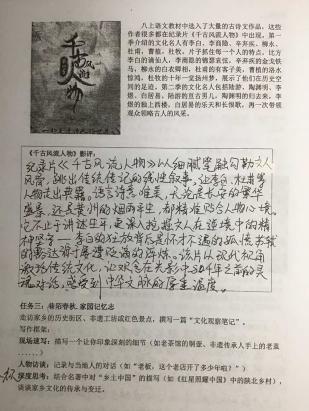 千古
风流
人物
八上语文教材中选入了大量的古诗文作品，这些
作者很多都在纪录片《千古风流人物》中出现，第一
季介绍的文化名人有李白、李商隐、辛弃疾、柳永、
杜甫、曹植、杜牧，片子抓住每一个人的特点，比方
李白的谪仙人，李商隐的锦瑟哀弦，辛弃疾的金戈铁
马，柳永的白衣卿相，杜甫的有客子美，曹植的洛水
惊鸿，杜牧的十年一觉扬州梦，展示了他们在历史空
间的足迹。第二季的文化名人包括陆游、陶渊明、李
煜、白居易，陆游的亘古男儿，陶渊明的归去来，李
煜的独上西楼，白居易的乐天和长恨歌，再一次带领
观众领略古人的风采。
《千古风流人物》影评：
纪录片《千古风流人物》以细腻笔触勾勒文人
风骨，跳出传统传记的线性叙事，让李白、杜甫等
人物走出典籍。语言诗意唯美，无论是长安的繁华
盛景，还是黄州的烟雨平生，都精准贴合人物心境。
它不止于讲述生平，更深入挖掘文人在逆境中的精
神坚守——李白的狂放背后是怀才不遇的孤愤，苏轼
的豁达源于屡遭贬谪的淬炼。该片以现代视角
激活传统文化，让观众在光影中与千年之前的灵
魂对话，感受到中华文脉的厚重温度。
任务三：巷陌春秋，家园记忆志
走访家乡的历史街区、非遗工坊或红色景点，撰写一篇“文化观察笔记”。
写作框架：
现场速写：描写一个让你印象深刻的细节（如老茶馆的铜壶、非遗传承人手上的老茧
……）
人物访谈：记录与当地人的对话（如“老板，这个老店开了多少年啦？”）
深度思考：结合名著中对“乡土中国”的描写（如《红星照耀中国》中的陕北乡村），
谈谈家乡文化的传承与变迁。